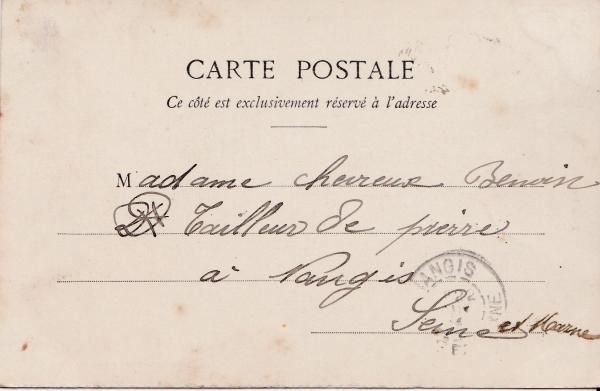 CARTE POSTALE
Ce côté est exclusivement réservé à l'adresse
Madame chevreux Benoin
Tailleur de pierre
à Nangis
Seine et Marne
ANGIS